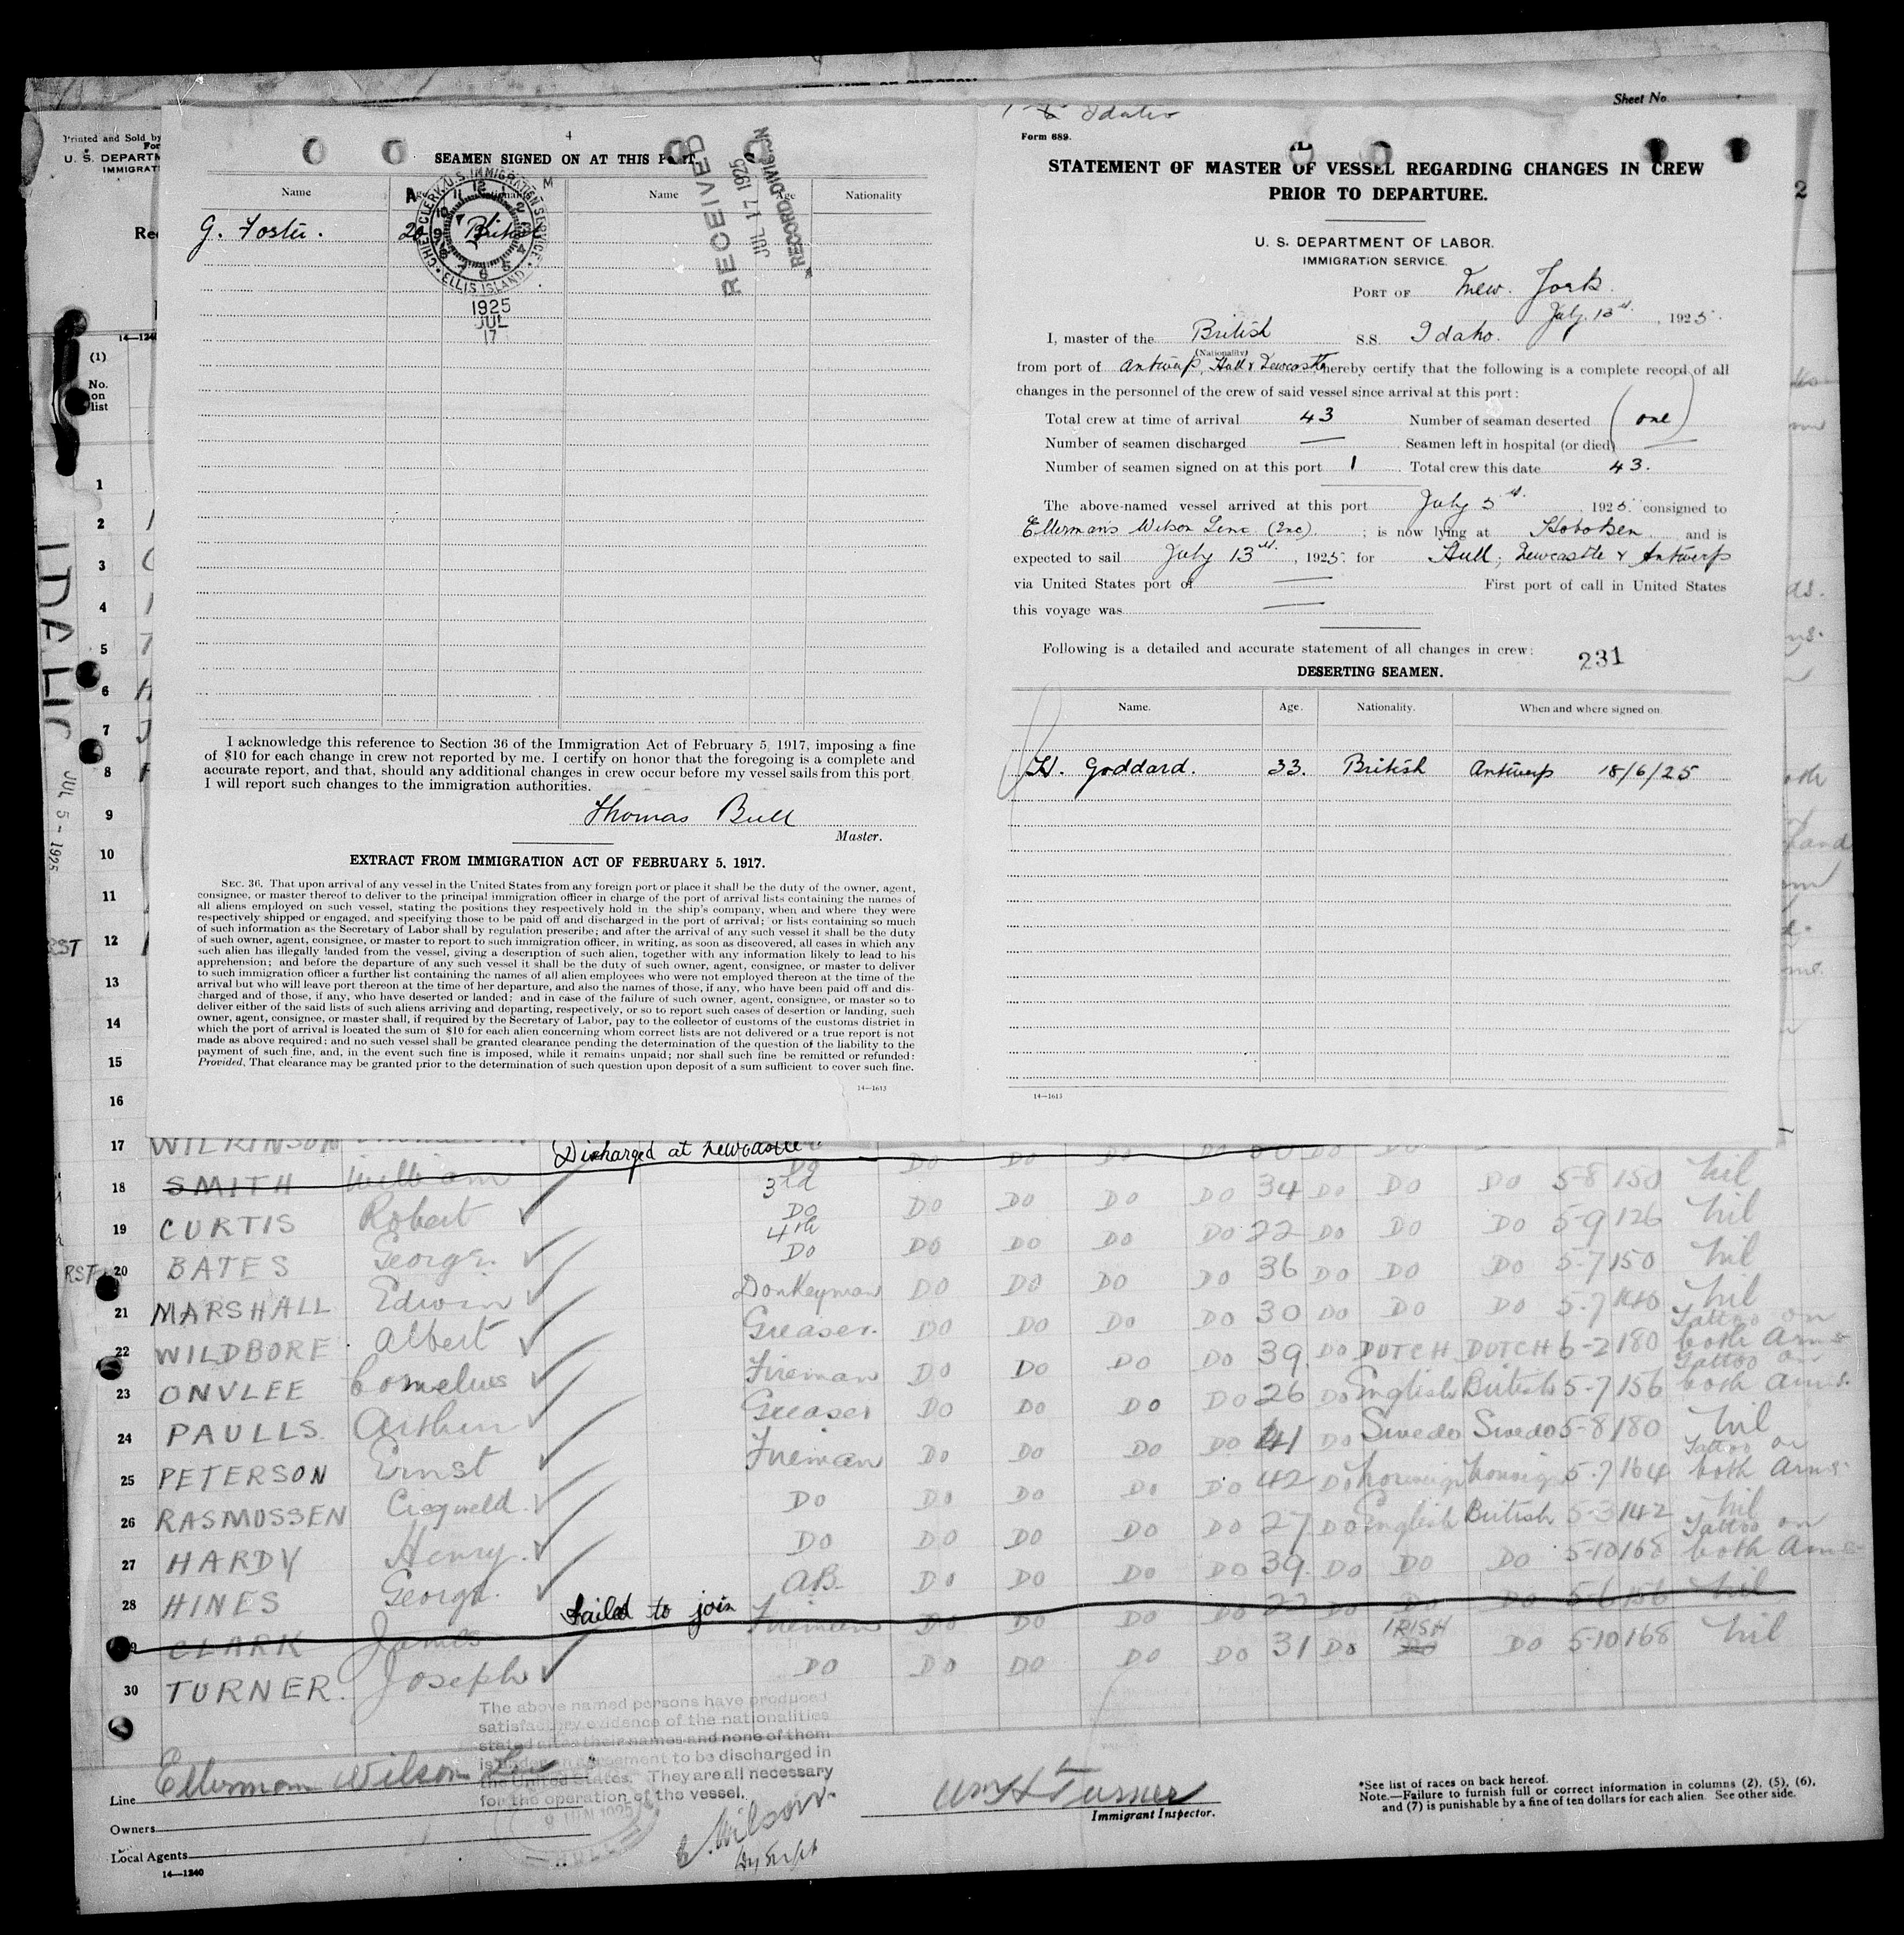 Sheet No.
Printed and Sold by
U. S. DEPARTM
IMMIGRAT
14—1240
(1)
No.
on
list
IDAHO
JUL 5 - 1925
2
4
SEAMEN SIGNED ON AT THIS PORT.
Name Age Nationality Name Age Nationality
G. Foster. 20 British
CHIEF CLERK, U.S. IMMIGRATION SERVICE
ELLIS ISLAND
1925
JUL
17
RECEIVED
JUL 17 1925
RECORD DIVISION
I acknowledge this reference to Section 36 of the Immigration Act of February 5, 1917, imposing a fine
of $10 for each change in crew not reported by me. I certify on honor that the foregoing is a complete and
accurate report, and that, should any additional changes in crew occur before my vessel sails from this port
I will report such changes to the immigration authorities.
Thomas Bull
Master.
EXTRACT FROM IMMIGRATION ACT OF FEBRUARY 5, 1917.
SEC. 36. That upon arrival of any vessel in the United States from any foreign port or place it shall be the duty of the owner, agent,
consignee, or master thereof to deliver to the principal immigration officer in charge of the port of arrival lists containing the names of
all aliens employed on such vessel, stating the positions they respectively hold in the ship's company, when and where they were
respectively shipped or engaged, and specifying those to be paid off and discharged in the port of arrival; or lists containing so much
of such information as the Secretary of Labor shall by regulation prescribe; and after the arrival of any such vessel it shall be the duty
of such owner, agent, consignee, or master to report to such immigration officer, in writing, as soon as discovered, all cases in which any
such alien has illegally landed from the vessel, giving a description of such alien, together with any information likely to lead to his
apprehension; and before the departure of any such vessel it shall be the duty of such owner, agent, consignee, or master to deliver
to such immigration officer a further list containing the names of all alien employees who were not employed thereon at the time of the
arrival but who will leave port thereon at the time of her departure, and also the names of those, if any, who have been paid off and dis-
charged and of those, if any, who have deserted or landed; and in case of the failure of such owner, agent, consignee, or master so to
deliver either of the said lists of such aliens arriving and departing, respectively, or so to report such cases of desertion or landing, such
owner, agent, consignee, or master shall, if required by the Secretary of Labor, pay to the collector of customs of the customs district in
which the port of arrival is located the sum of $10 for each alien concerning whom correct lists are not delivered or a true report is not
made as above required; and no such vessel shall be granted clearance pending the determination of the question of the liability to the
payment of such fine, and, in the event such fine is imposed, while it remains unpaid; nor shall such fine be remitted or refunded:
Provided, That clearance may be granted prior to the determination of such question upon deposit of a sum sufficient to cover such fine.
14—1613
Idaho
Form 689.
STATEMENT OF MASTER OF VESSEL REGARDING CHANGES IN CREW
PRIOR TO DEPARTURE.
U. S. DEPARTMENT OF LABOR.
IMMIGRATION SERVICE.
PORT OF New York.
July 13th, 1925.
I, master of the British S.S. Idaho.
(Nationality)
from port of Antwerp, Hull & Newcastle hereby certify that the following is a complete record of all
changes in the personnel of the crew of said vessel since arrival at this port:
Total crew at time of arrival 43 Number of seaman deserted (one)
Number of seamen discharged — Seamen left in hospital (or died) —
Number of seamen signed on at this port 1 Total crew this date 43.
The above-named vessel arrived at this port July 5th, 1925. consigned to
Ellermans Wilson Line (Inc). ; is now lying at Hoboken and is
expected to sail July 13th, 1925. for Hull, Newcastle & Antwerp
via United States port of — First port of call in United States
this voyage was —
Following is a detailed and accurate statement of all changes in crew:
231
DESERTING SEAMEN.
Name. Age. Nationality. When and where signed on.
H. Goddard. 33. British Antwerp 18/6/25
14—1613
1
2
3
4
5
6
7
8
9
10
11
12
13
14
15
16
17 WILKINSON Discharged at Newcastle
18 SMITH William Do Do Do Do Do
19 CURTIS Robert 3rd Do Do Do Do Do 34 Do Do Do 5-8 150 Nil
20 BATES George 4th Do Do Do Do Do 22 Do Do Do 5-9 126 Nil
21 MARSHALL Edwin Donkeyman Do Do Do Do 36 Do Do Do 5-7 150 Nil
22 WILDBORE Albert Greaser. Do Do Do Do 30 Do Do Do 5-7 140 Nil
23 ONVLEE Cornelius Fireman Do Do Do Do 39 Do DUTCH DUTCH 6-2 180 Tattoo on both Arms
24 PAULLS. Arthur Greaser Do Do Do Do 26 Do English British 5-7 156 Tattoo on both Arms.
25 PETERSON Ernst Fireman Do Do Do Do 41 Do Swede Swede 5-8 180 Nil
26 RASMUSSEN Do Do Do Do Do 42 Do 5-7 164 Tattoo on both Arms
27 HARDY Henry. Do Do Do Do Do 27 Do English British 5-3 142 Nil
28 HINES George. A.B. Do Do Do Do 39. Do Do Do 5-10 168 Tattoo on both Arms
29 CLARK James failed to join Fireman Do Do Do Do 22 Do Do Do 5-6 156 Nil
30 TURNER. Joseph Do Do Do Do Do 31 Do IRISH Do 5-10 168 Nil
The above named persons have produced
satisfactory evidence of the nationalities
stated after their names and none of them
is under an agreement to be discharged in
the United States. They are all necessary
for the operation of the vessel.
9 JUN 1925
HULL
Line Ellerman Wilson Line
Owners
Local Agents
14—1240
Wm H Turner
Immigrant Inspector.
*See list of races on back hereof.
Note.—Failure to furnish full or correct information in columns (2), (5), (6),
and (7) is punishable by a fine of ten dollars for each alien. See other side.